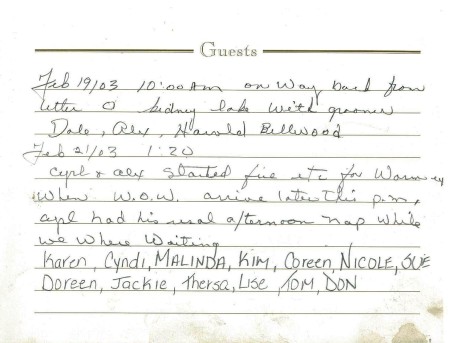 Guests
Feb 19/03 10:00 Am on Way back from
letter O Sidney lake With groomer
Dale, Alex, Harold Bellwood
Feb 21/03 1:20
cyrl & alex started fire etc for Warm
When W.O.W. arrive later this p.m,
cyrl had his usal afternoon nap While
we Where Waiting
Karen, Cyndi, MALINDA, KIM, Coreen, NICOLE, SUE
Doreen, Jackie, Thersa, Lise, TOM, DON